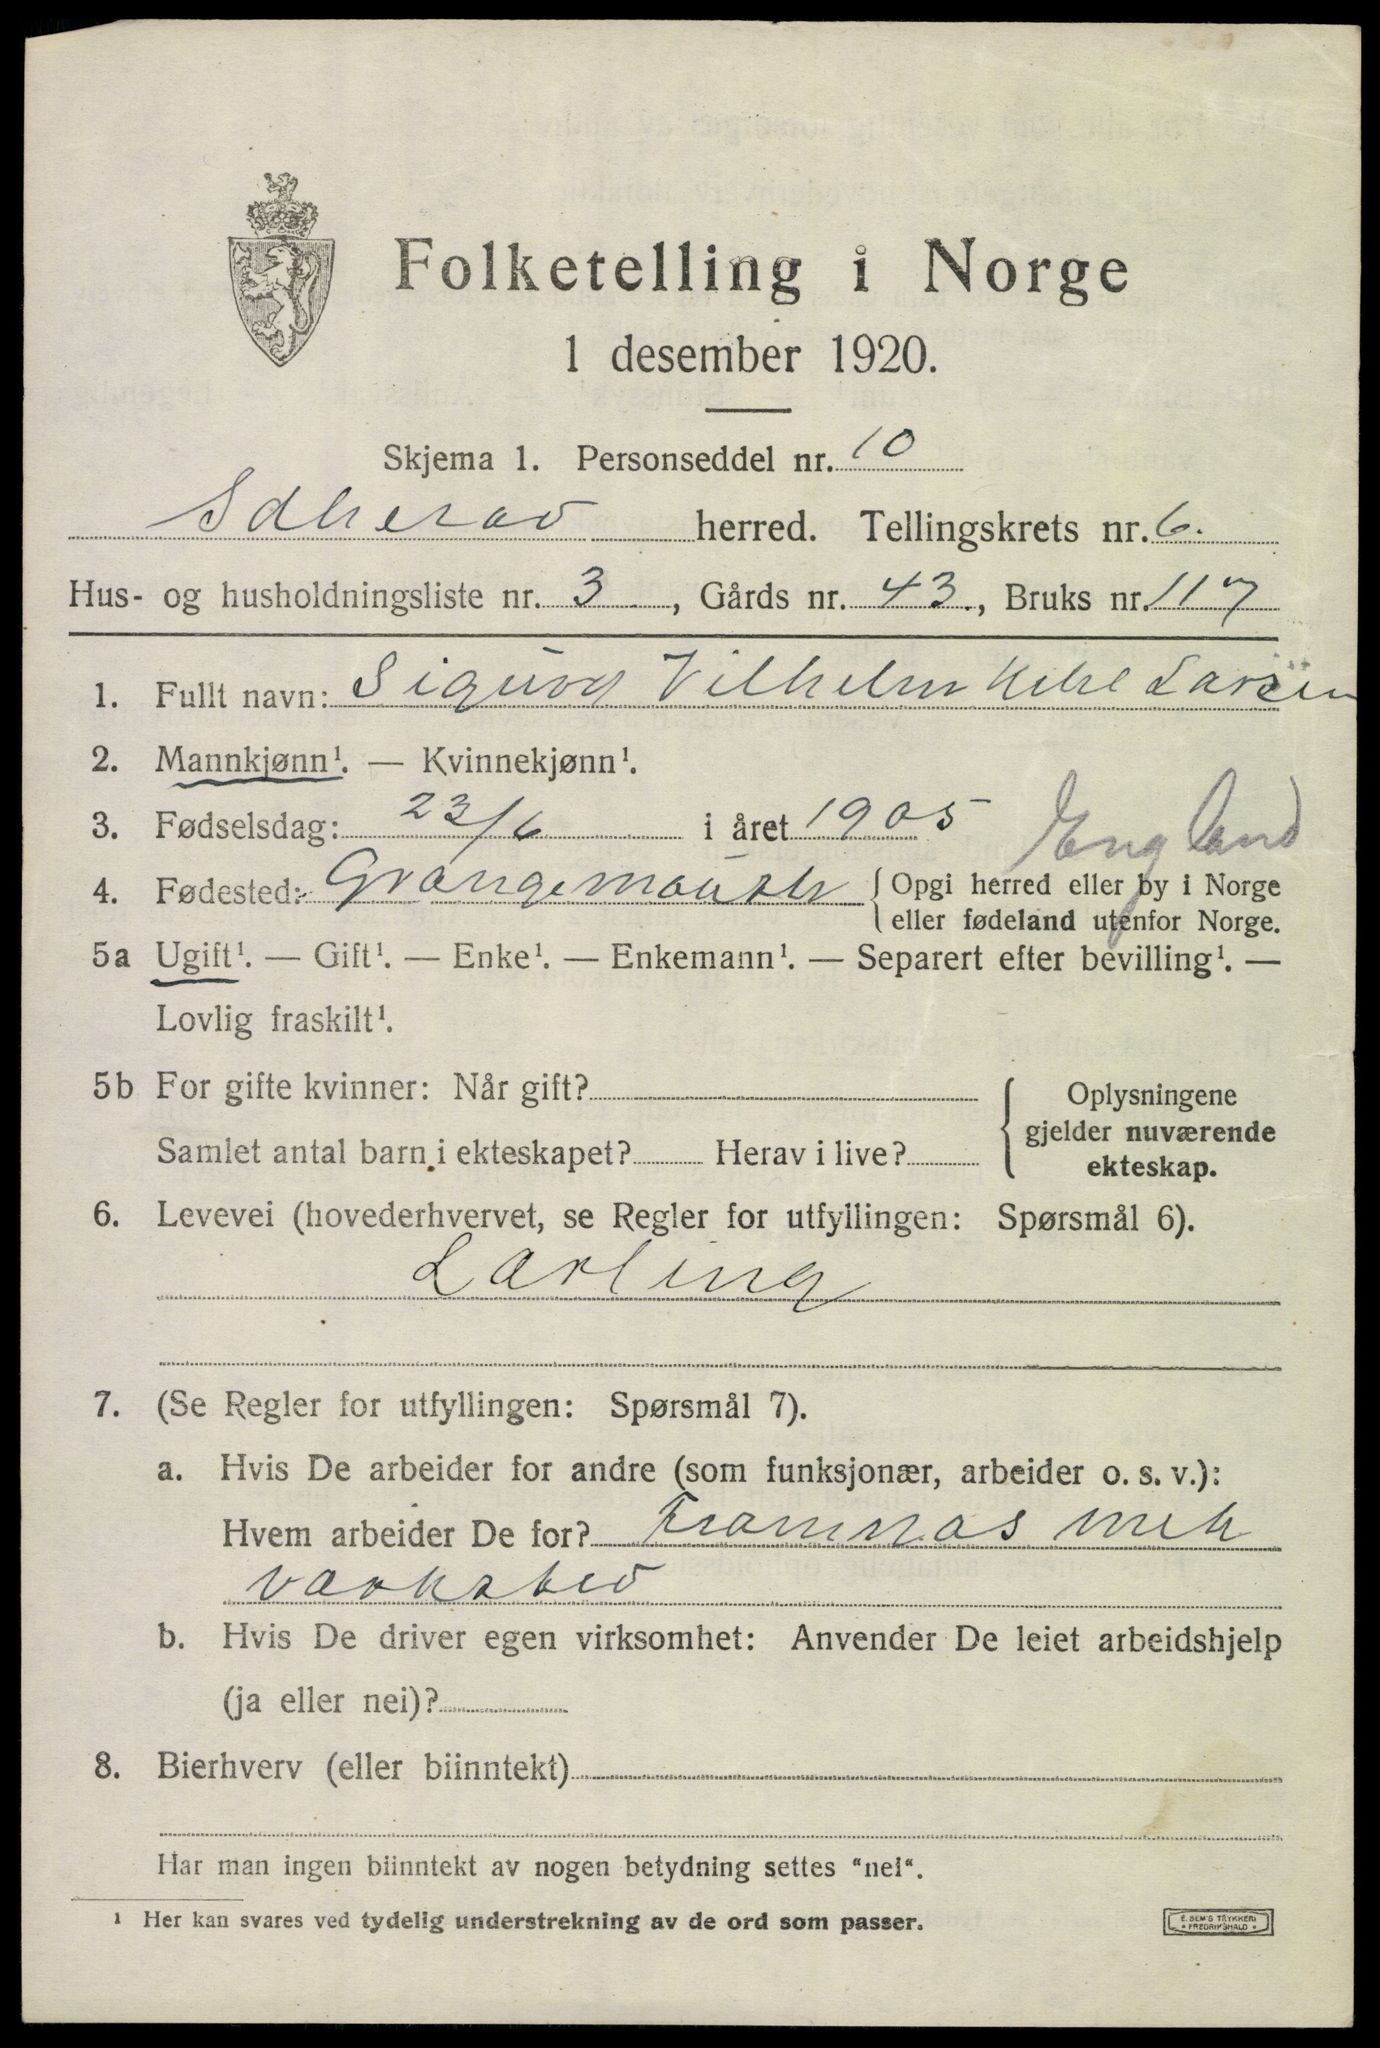 Folketelling i Norge
1 desember 1920.
Skjema 1. Personseddel nr. 10
herred. Tellingskrets nr. 6.
Hus- og husholdningsliste nr. 3, Gårds nr. 43, Bruks nr. 117
1. Fullt navn: Sigurd Vilhelm Larsen
2. Mannkjønn¹. — Kvinnekjønn¹.
3. Fødselsdag: 23/6 i året 1905
England
4. Fødested: Grangemouth { Opgi herred eller by i Norge
eller fødeland utenfor Norge.
5a Ugift¹. — Gift¹. — Enke¹. — Enkemann¹. — Separert efter bevilling¹. —
Lovlig fraskilt¹.
5b For gifte kvinner: Når gift?
Samlet antal barn i ekteskapet? Herav i live?
{ Oplysningene
gjelder nuværende
ekteskap.
6. Levevei (hovederhvervet, se Regler for utfyllingen: Spørsmål 6).
Lærling
7. (Se Regler for utfyllingen: Spørsmål 7).
a. Hvis De arbeider for andre (som funksjonær, arbeider o. s. v.):
Hvem arbeider De for? Framnæs mek
værksted
b. Hvis De driver egen virksomhet: Anvender De leiet arbeidshjelp
(ja eller nei)?
8. Bierhverv (eller biinntekt)
Har man ingen biinntekt av nogen betydning settes "nei".
¹ Her kan svares ved tydelig understrekning av de ord som passer.
E. SEM'S TRYKKERI
* FREDRIKSHALD *